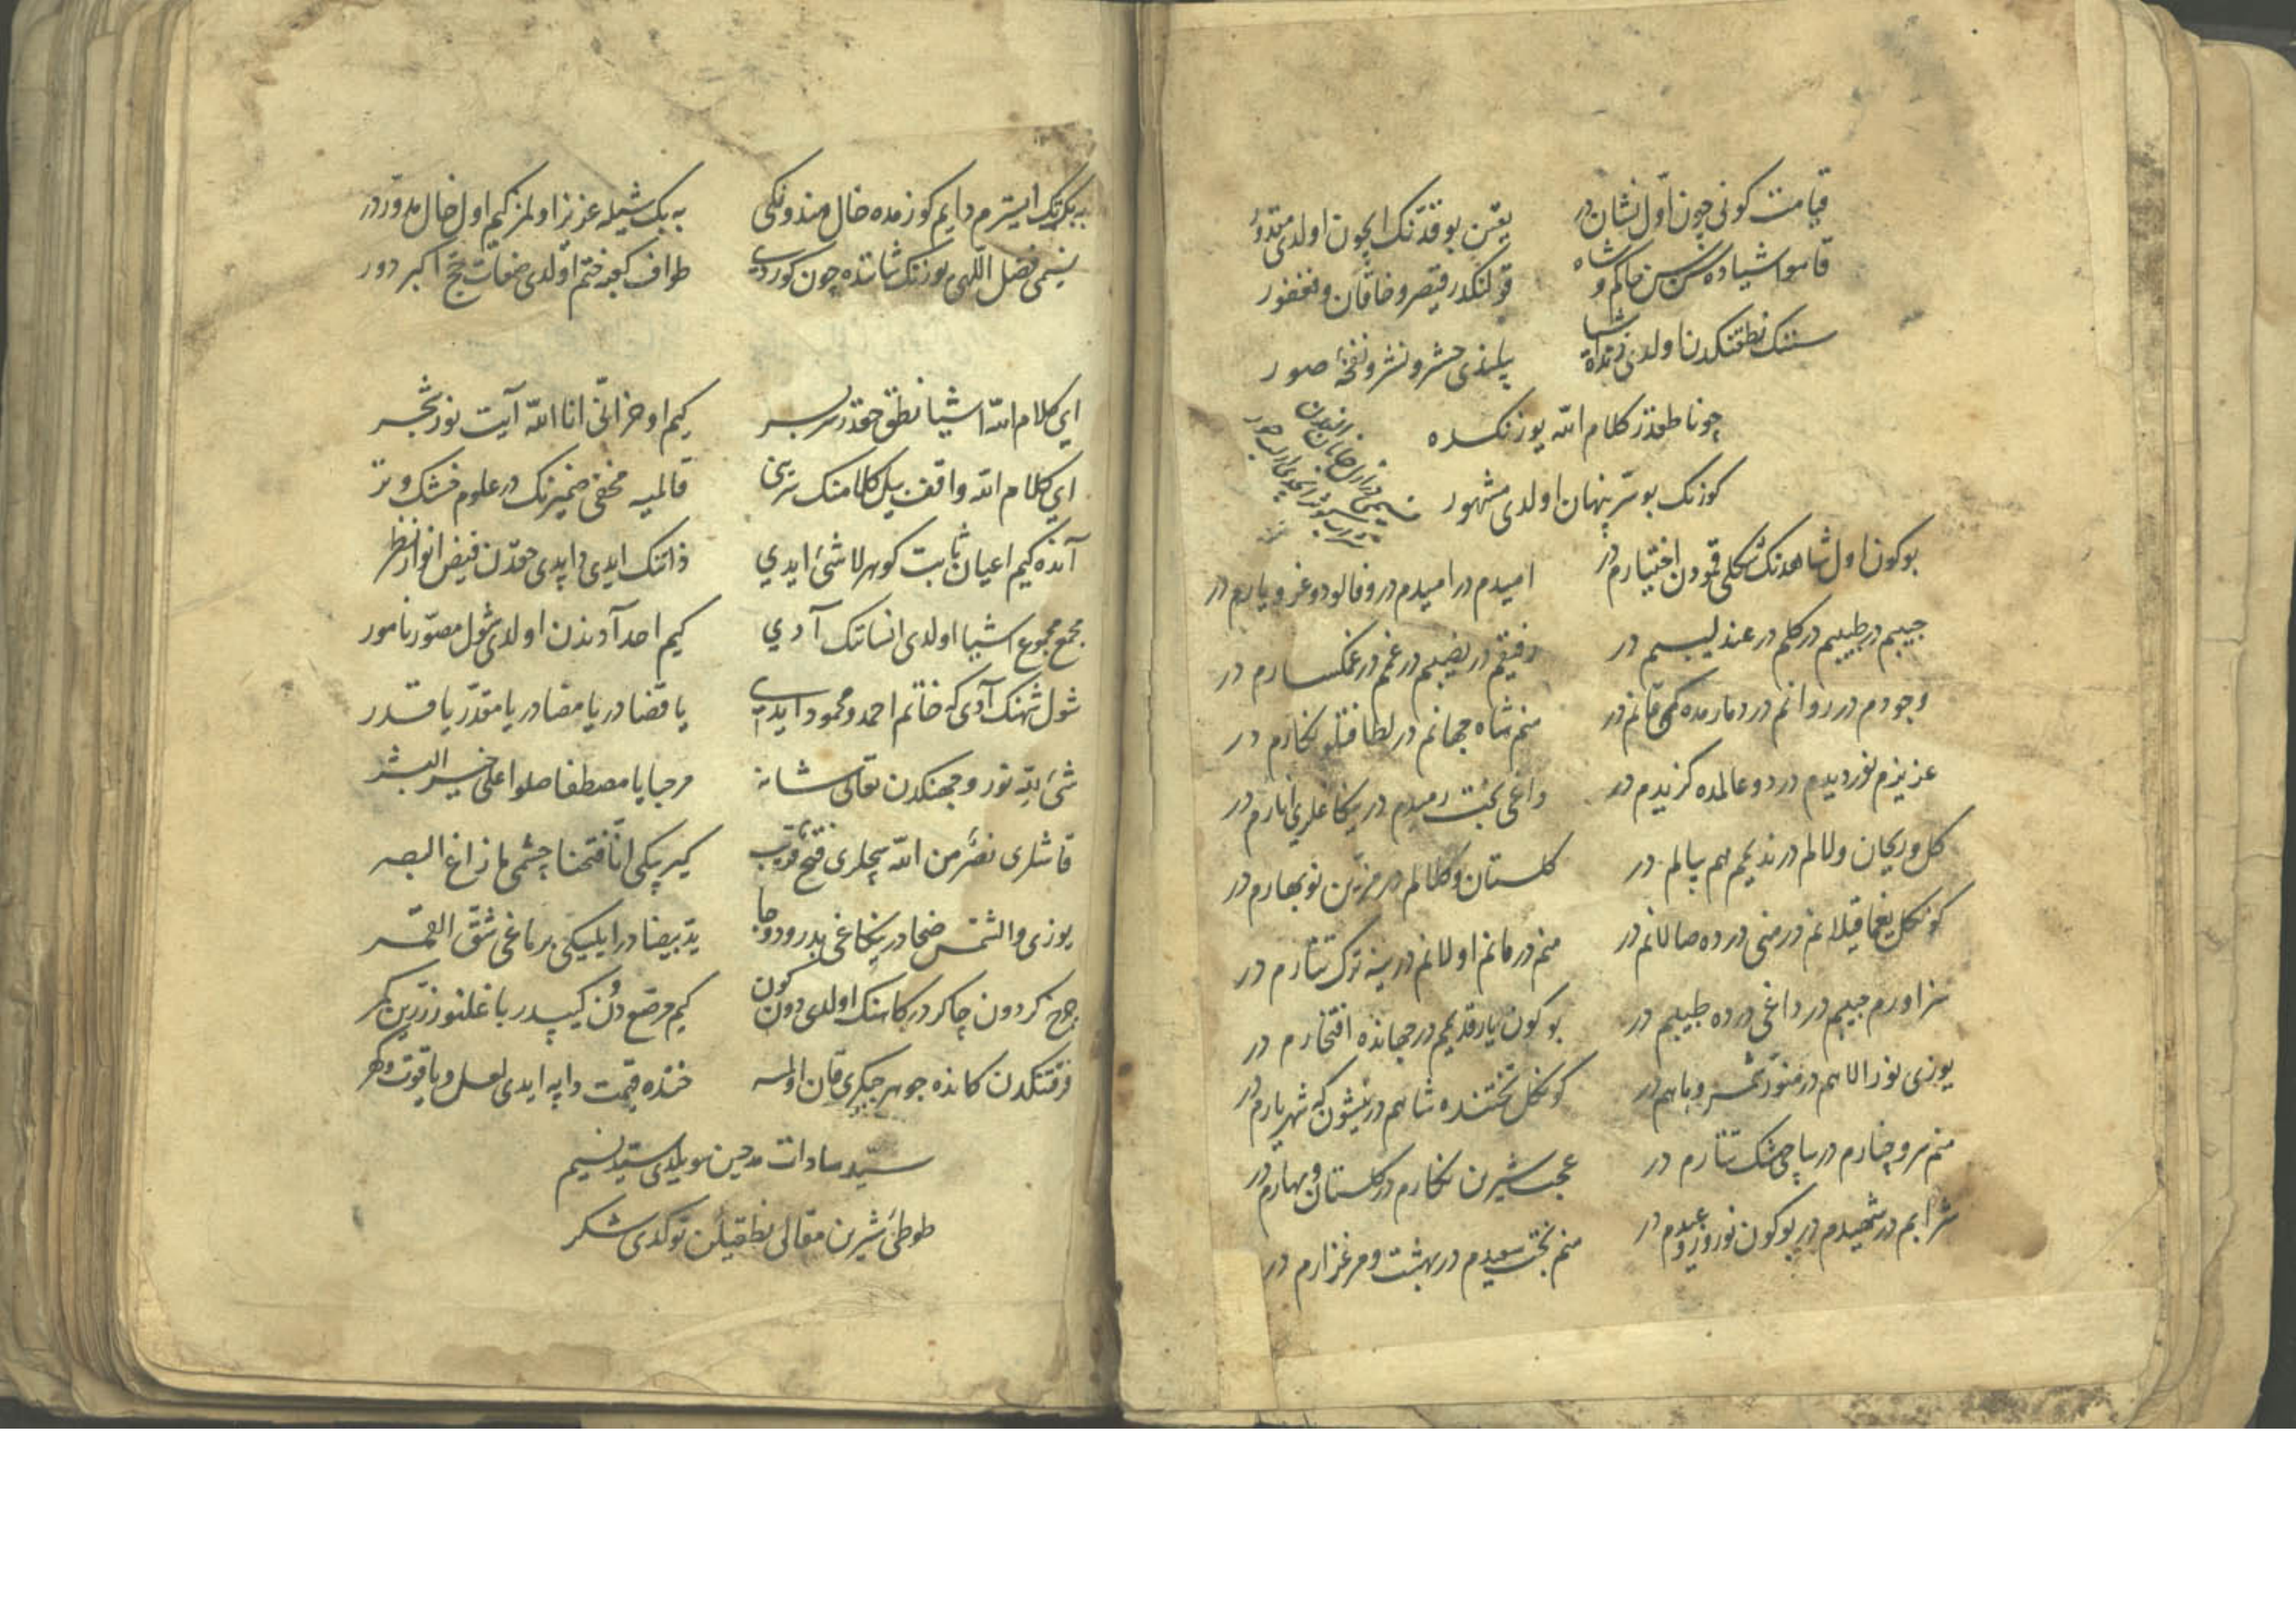 قیامت کونی چون اول نشان در یقین بوقدّنک ایچون اولدی مقدور
قامو اشیاده سن سن حاکم و شاه قولنکدر قیصر و خاقان و فغفور
سننک نطقنکدن اولدی زنده اشیا بیلندی حشر و نشر و نفخهٔ صور
چو ناطقدر کلام الله یوزنکده
کوزنک بو سر پنهان اولدی مشهور
بوکون اول شاهدنک شکلی قمودن اختیارم در امیدم در امیدم در وفالو دوغرو یارم در
حبیبم در طبیبم در کلم در عندلیبم در رفیقم در نصیبم در غمم در غمکسارم در
وجودم در روانم در دمارمده کی قانم در منم شاه جهانم در لطافتلو نکارم در
عزیزم نور دیدم در دو عالمده کزیدم در داغی بخت رمیدم در یکاغلری نارم در
کل و ریحان و لالم در ندیمم هم پیالم در کلستان و کلالم در مزین نوبهارم در
کونکل یغما قیلانم در منی درده صالانم در منم درمانم اولانم در ینه ترک تتارم در
سزاورم حبیبم در داغی درده طبیبم در بوکون یار قدیمم در جهانده افتخارم در
یوزی نور الاهم در منور شمس و ماهم در کونکل تختنده شاهم در نیشون که شهریارم در
منم سرو چنارم در ساچی مشک تتارم در عجب شیرین نکارم در کلستان و بهارم در
شرابم در شهیدم در بوکون نوروز و عیدم در منم بخت سعیدم در بهشت و مرغزارم در
ایسترم دایم کوزمده خال هندونکی عزیز اولمز کیم اول خال مدوّر در
نسیمی فضل اللهی یوزنک شاننده چون کوردی طواف کعبه ختم اولدی صفات حجّ اکبر دور
ای کلام الله اشیا نطق حقدر سربسر کیم اوخر انّی انا الله آیت نور شجر
ای کلام الله واقف بیل کلامنک سرّینی قالمیه مخفی ضمیرنک در علوم خشک و تر
آنده کیم اعیان ثابت کوهر لاشیٔ ایدی ذاتنک ایدی دایدی حقدن فیض انوار نظر
مجمع مجموع اشیا اولدی انساننک آدی کیم احد آدندن اولدی شول مصوّر نامور
شول شهنک آدی که خاتم احمد و محمود ایدی یا قضا در یا مضا در یا مقدّر یا قدر
شیٔ لله نور وجهنکدن تعالی شانه مرحبا یا مصطفا صلوا علی خیر البشر
قاشلری نصرٌ من الله ساچلری فتح قریب کیرپیکی انّا فتحنا چشمی ما زاغ البصر
یوزی والشمس ضحا در یکاغی بدر و دوجا ید بیضا در ایلیکی برماغی شقّ القمر
چرخ کردون چاکر درکاهنک اولدی دون و کون کیم مرصّع دن کیپدر باغلنور زرّین کمر
فرقتکدن کانده جوهر جیکری قان اولمسه خنده قیمت دایه ایدی لعل و یاقوت و کهر
سیّد سادات مدحین سویلدی سیّد نسیم
طوطیٔ شیرین مقالی نطقیلن توکدی شکر